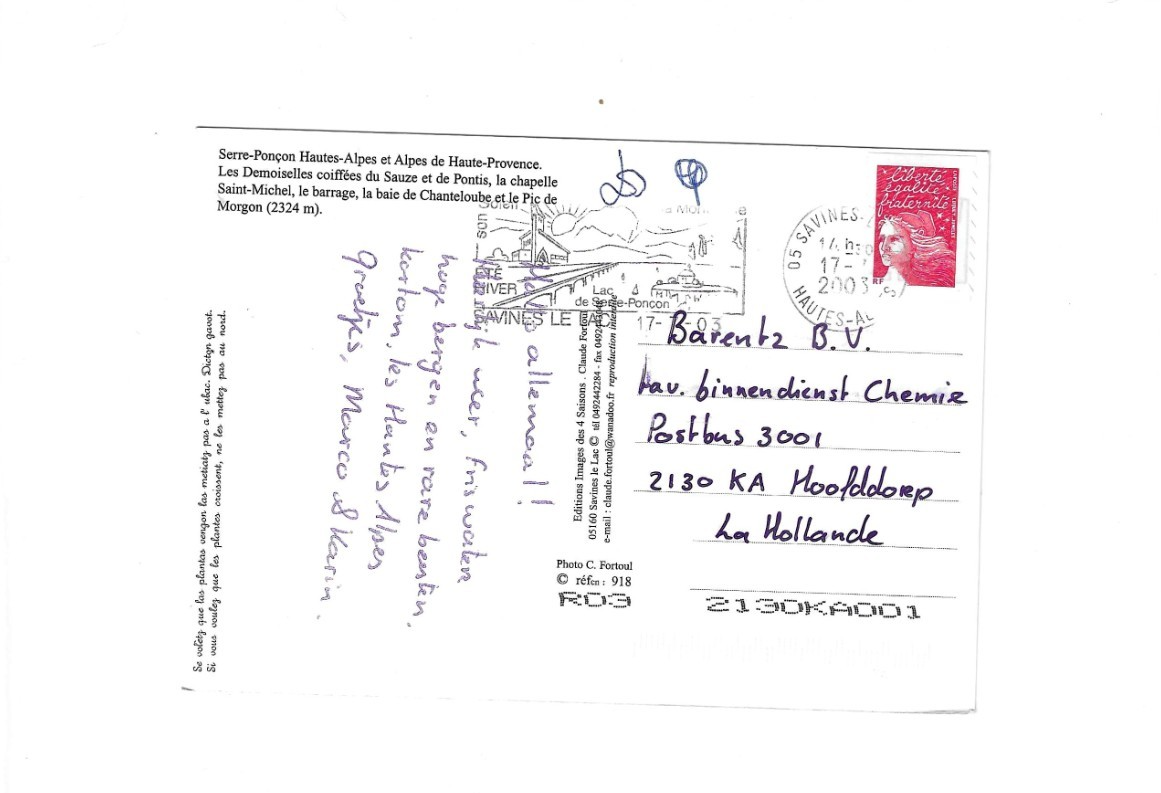 Serre-Ponçon Hautes-Alpes et Alpes de Haute-Provence.
Les Demoiselles coiffées du Sauze et de Pontis, la chapelle
Saint-Michel, le barrage, la baie de Chanteloube et le Pic de
Morgon (2324 m).
liberté
égalité
fraternité
RF
05 SAVINES-
17-
2003
HAUTES-A
son
Soleil
ÉTÉ
HIVER
Lac
de Serre-Ponçon
SAVINES LE LAC
17- -03
Hallo allemaal!
meer, fris water
hoge bergen en rare beesten.
kortom, les Hautes Alpes
Groetjes, Marco & Karin.
Barentz B.V.
t.a.v. binnendienst Chemie
Postbus 3001
2130 KA Hoofddorp
La Hollande
Editions Images des 4 Saisons . Claude Fortoul
05160 Savines le Lac © tél 0492442284 - fax
e-mail : claude.fortoul@wanadoo.fr reproduction interdite
Photo C. Fortoul
© réfcn : 918
R03
2130KA001
Se voletz que las plantas vengon las metiatz pas a l' ubac. Dicton gavot.
Si vous voulez que les plantes croissent, ne les mettez pas au nord.